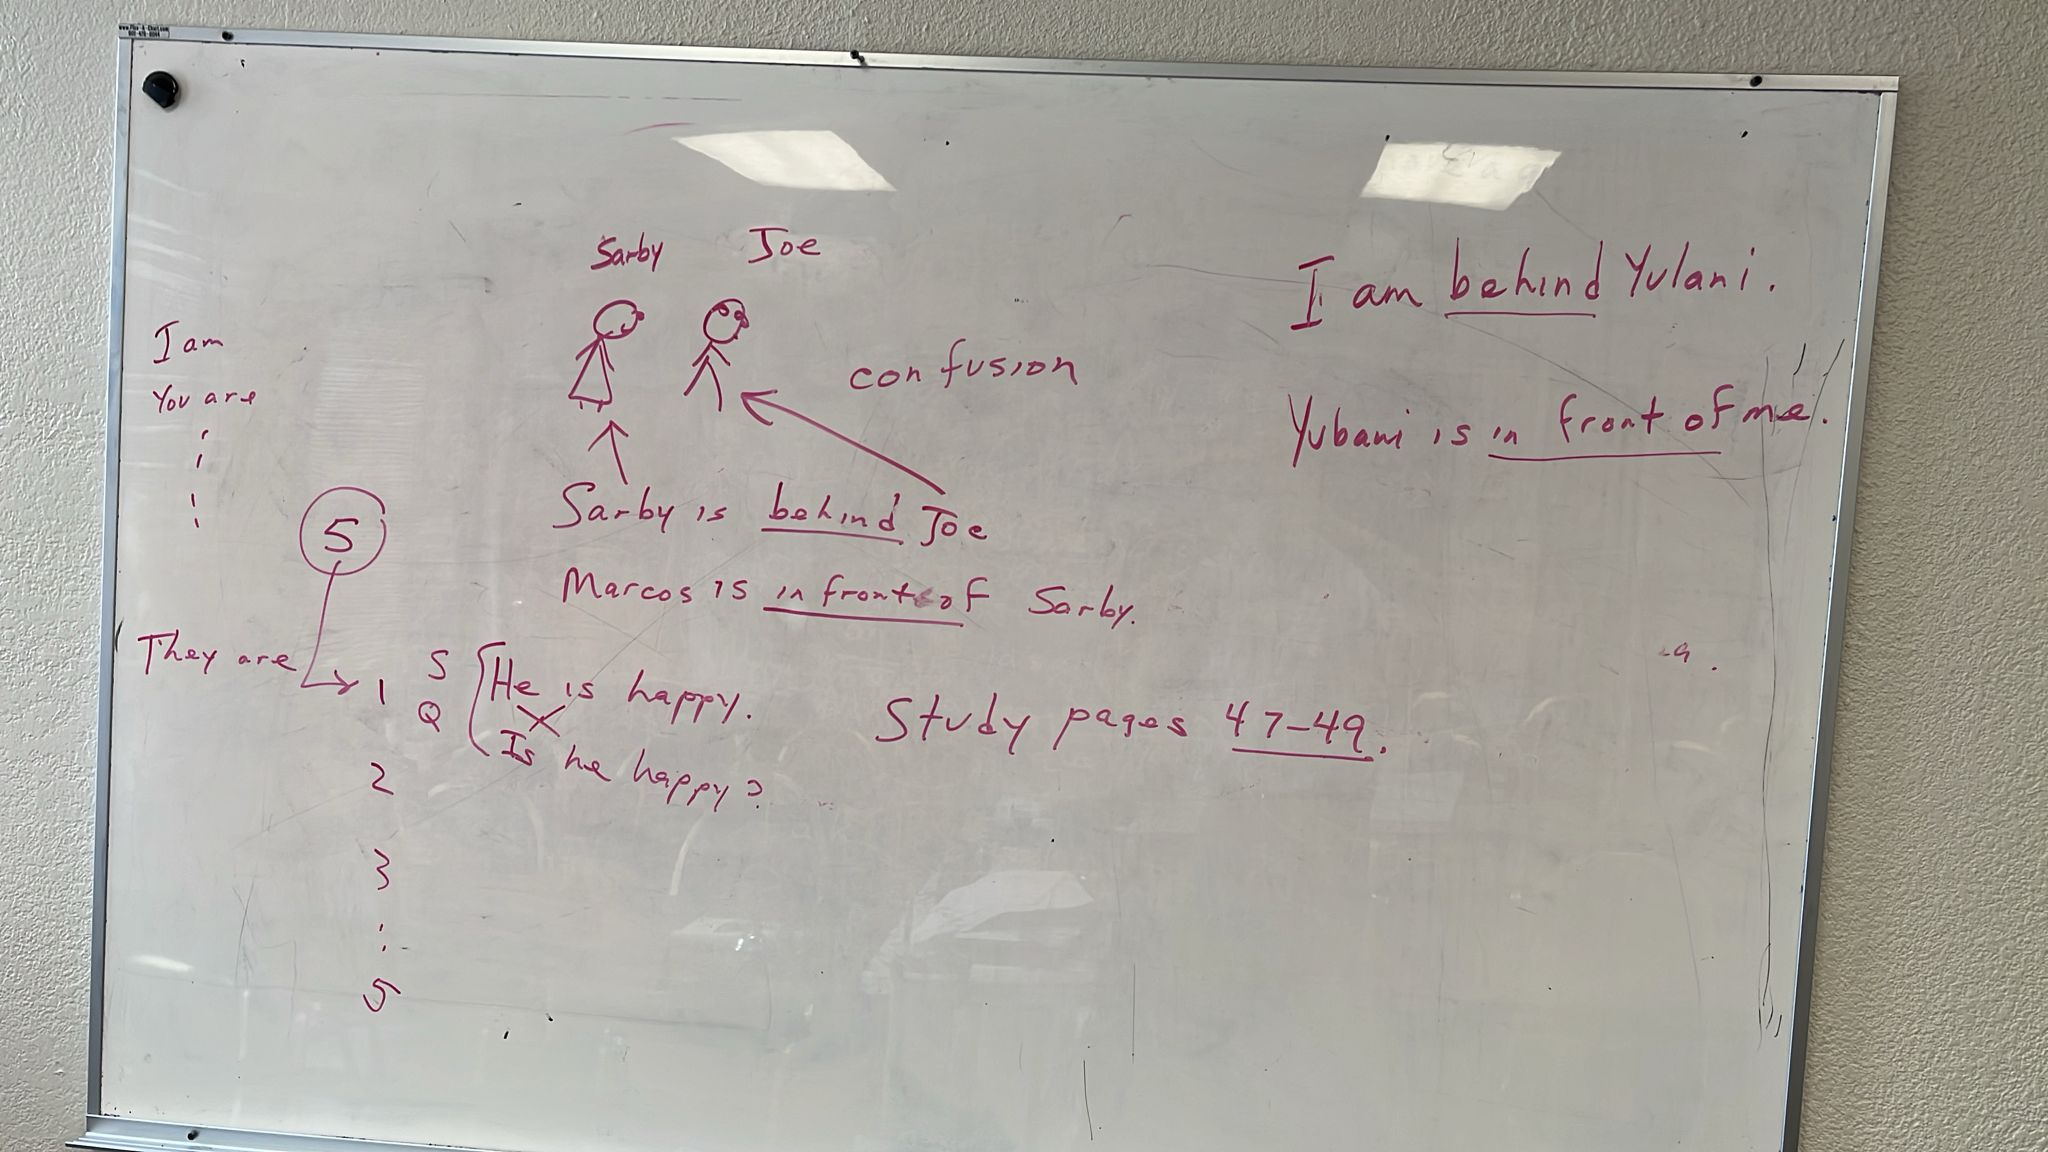 Sarby Joe
I am
You are
5
They are
confusion
Sarby is behind Joe
Marcos is in front of Sarby.
1 S He is happy.
Q Is he happy?
2
3
5
Study pages 47-49.
I am behind Yulani.
Yubani is in front of me.